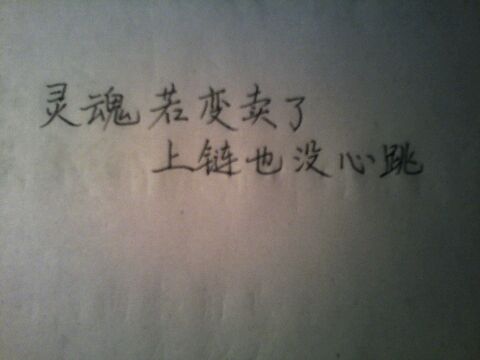 灵魂若变卖了
上链也没心跳